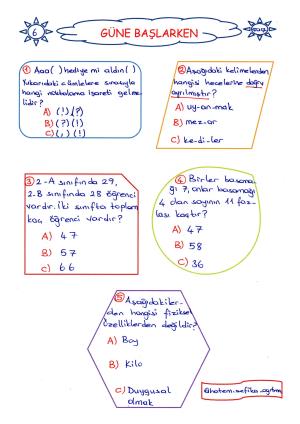 6
GÜNE BAŞLARKEN
① Aaa( ) hediye mi aldın( )
Yukarıdaki cümlelere sırasıyla
hangi noktalama işareti gelme-
lidir?
A) (!) (?)
B) (?) (!)
C) (,) (!)
② Aşağıdaki kelimelerden
hangisi hecelerine doğru
ayrılmıştır?
A) uy-an-mak
B) mez-ar
C) ke-di-ler
③ 2-A sınıfında 29,
2-B sınıfında 28 öğrenci
vardır. İki sınıfta toplam
kaç öğrenci vardır?
A) 47
B) 57
C) 66
④ Birler basama-
ğı 7, onlar basamağı
4 olan sayının 11 faz-
lası kaçtır?
A) 47
B) 58
C) 36
⑤ Aşağıdakiler-
den hangisi fiziksel
özelliklerden değildir?
A) Boy
B) Kilo
C) Duygusal
olmak